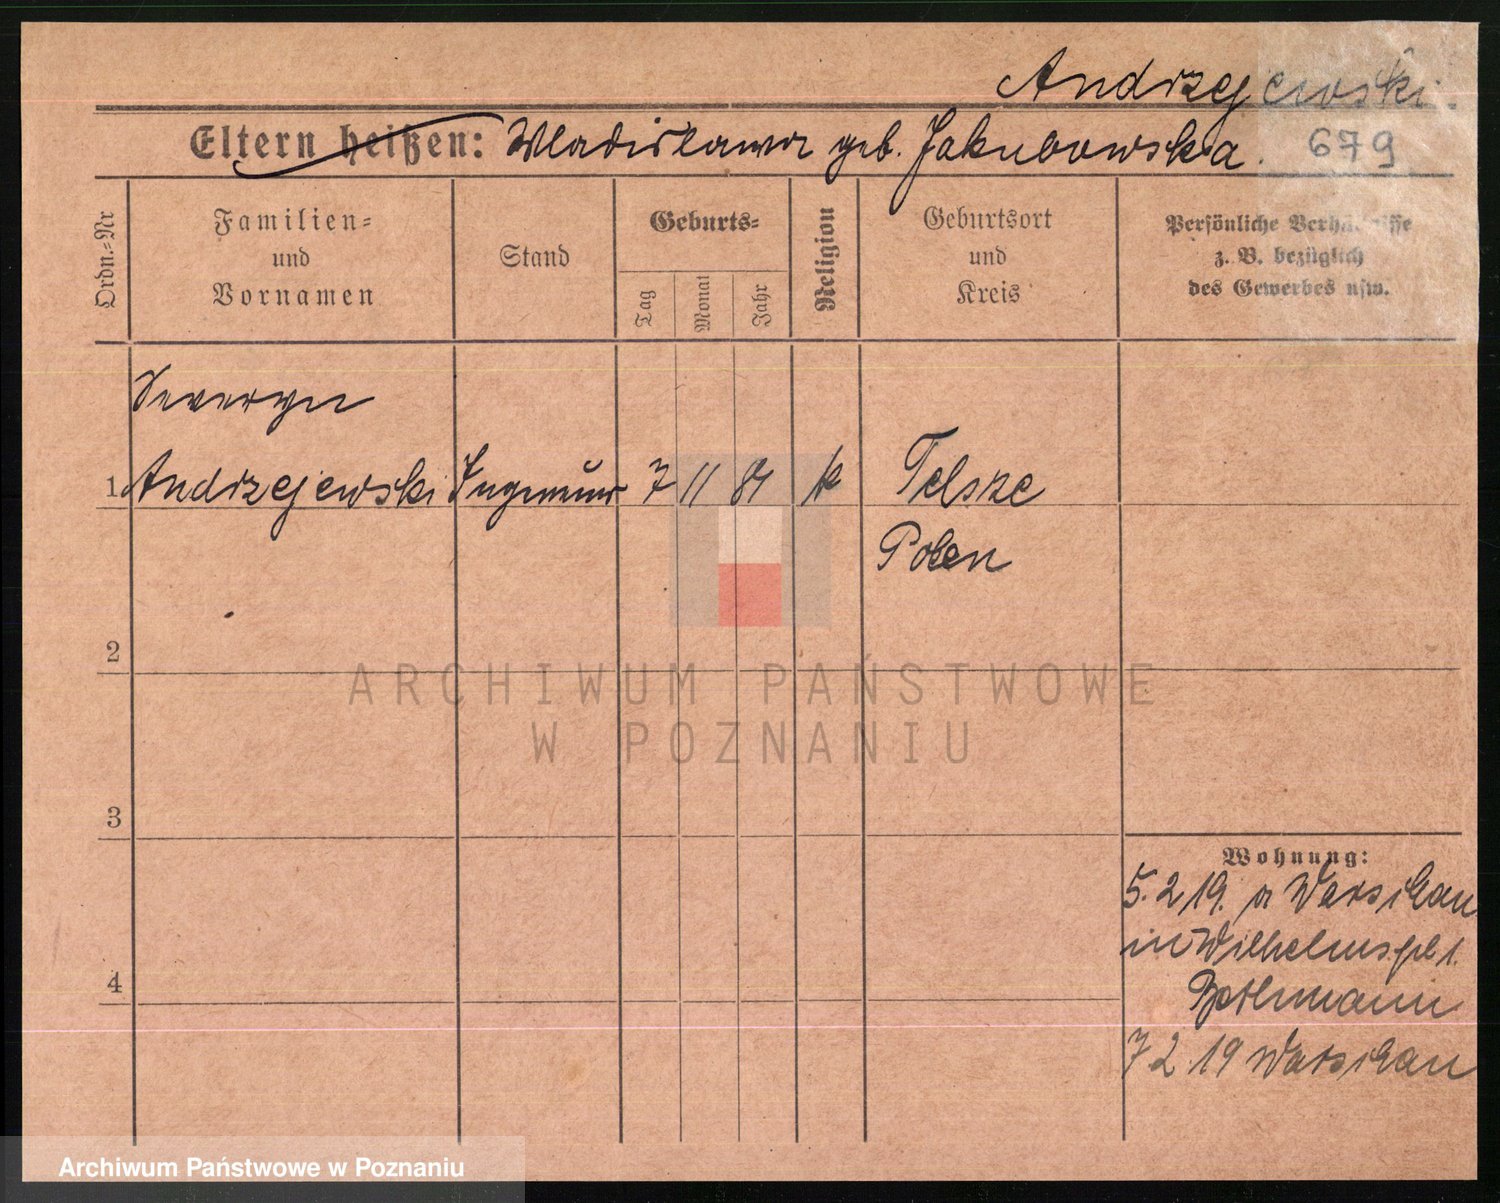 Andrzejewski.
679
Eltern heißen: Wladislawa geb. Jakubowska.
Ordn.-Nr
Familien- und Vornamen
Stand
Geburts-
Tag
Monat
Jahr
Religion
Geburtsort und Kreis
Persönliche Verhältnisse
z. B. bezüglich
des Gewerbes usw.
Seweryn
1 Andrzejewski Ingenieur 7 11 81 k Telske
Polen
2
ARCHIWUM PAŃSTWOWE
W POZNANIU
3
Wohnung:
5.2 19. a Warschau
in Wilhelmspl 1.
4
7 2 19 Warschau
Archiwum Państwowe w Poznaniu